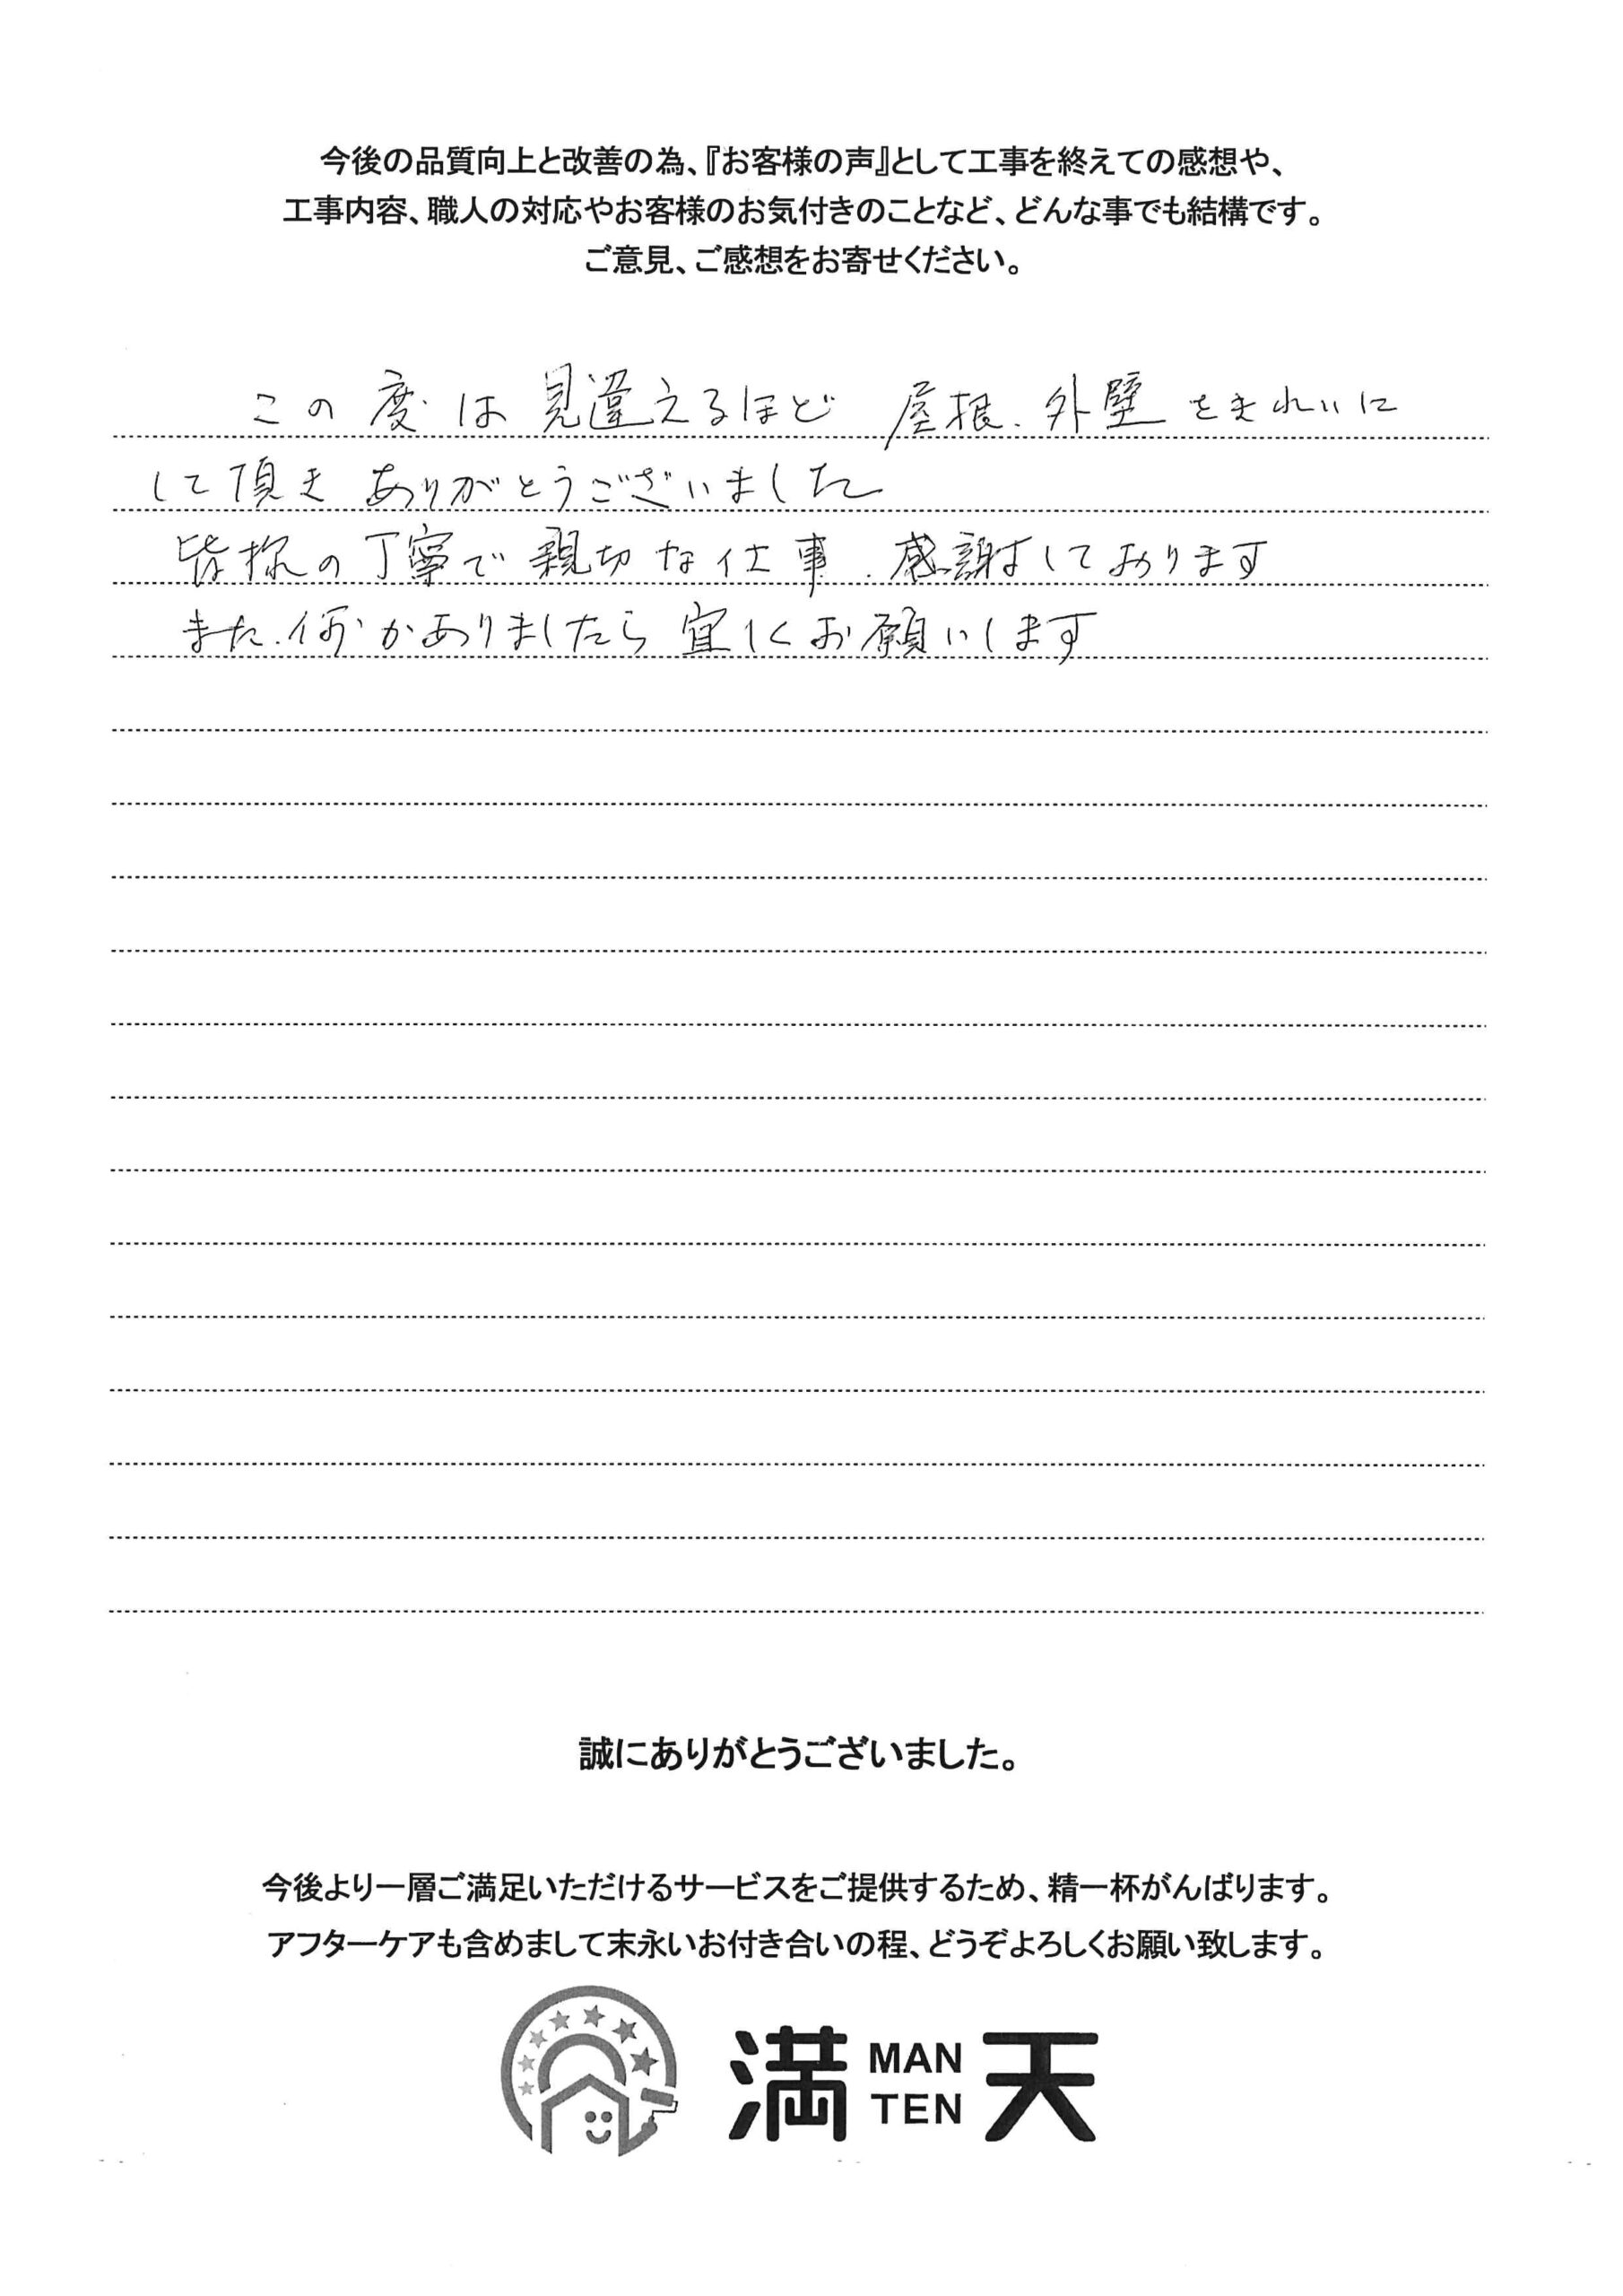 今後の品質向上と改善の為、『お客様の声』として工事を終えての感想や、
工事内容、職人の対応やお客様のお気付きのことなど、どんな事でも結構です。
ご意見、ご感想をお寄せください。
この度は見違えるほど 屋根、外壁をきれいに
して頂き ありがとうございました
皆様の丁寧で親切な仕事、感謝しております
また、何かありましたら宜しくお願いします
誠にありがとうございました。
今後より一層ご満足いただけるサービスをご提供するため、精一杯がんばります。
アフターケアも含めまして末永いお付き合いの程、どうぞよろしくお願い致します。
満 MAN TEN 天